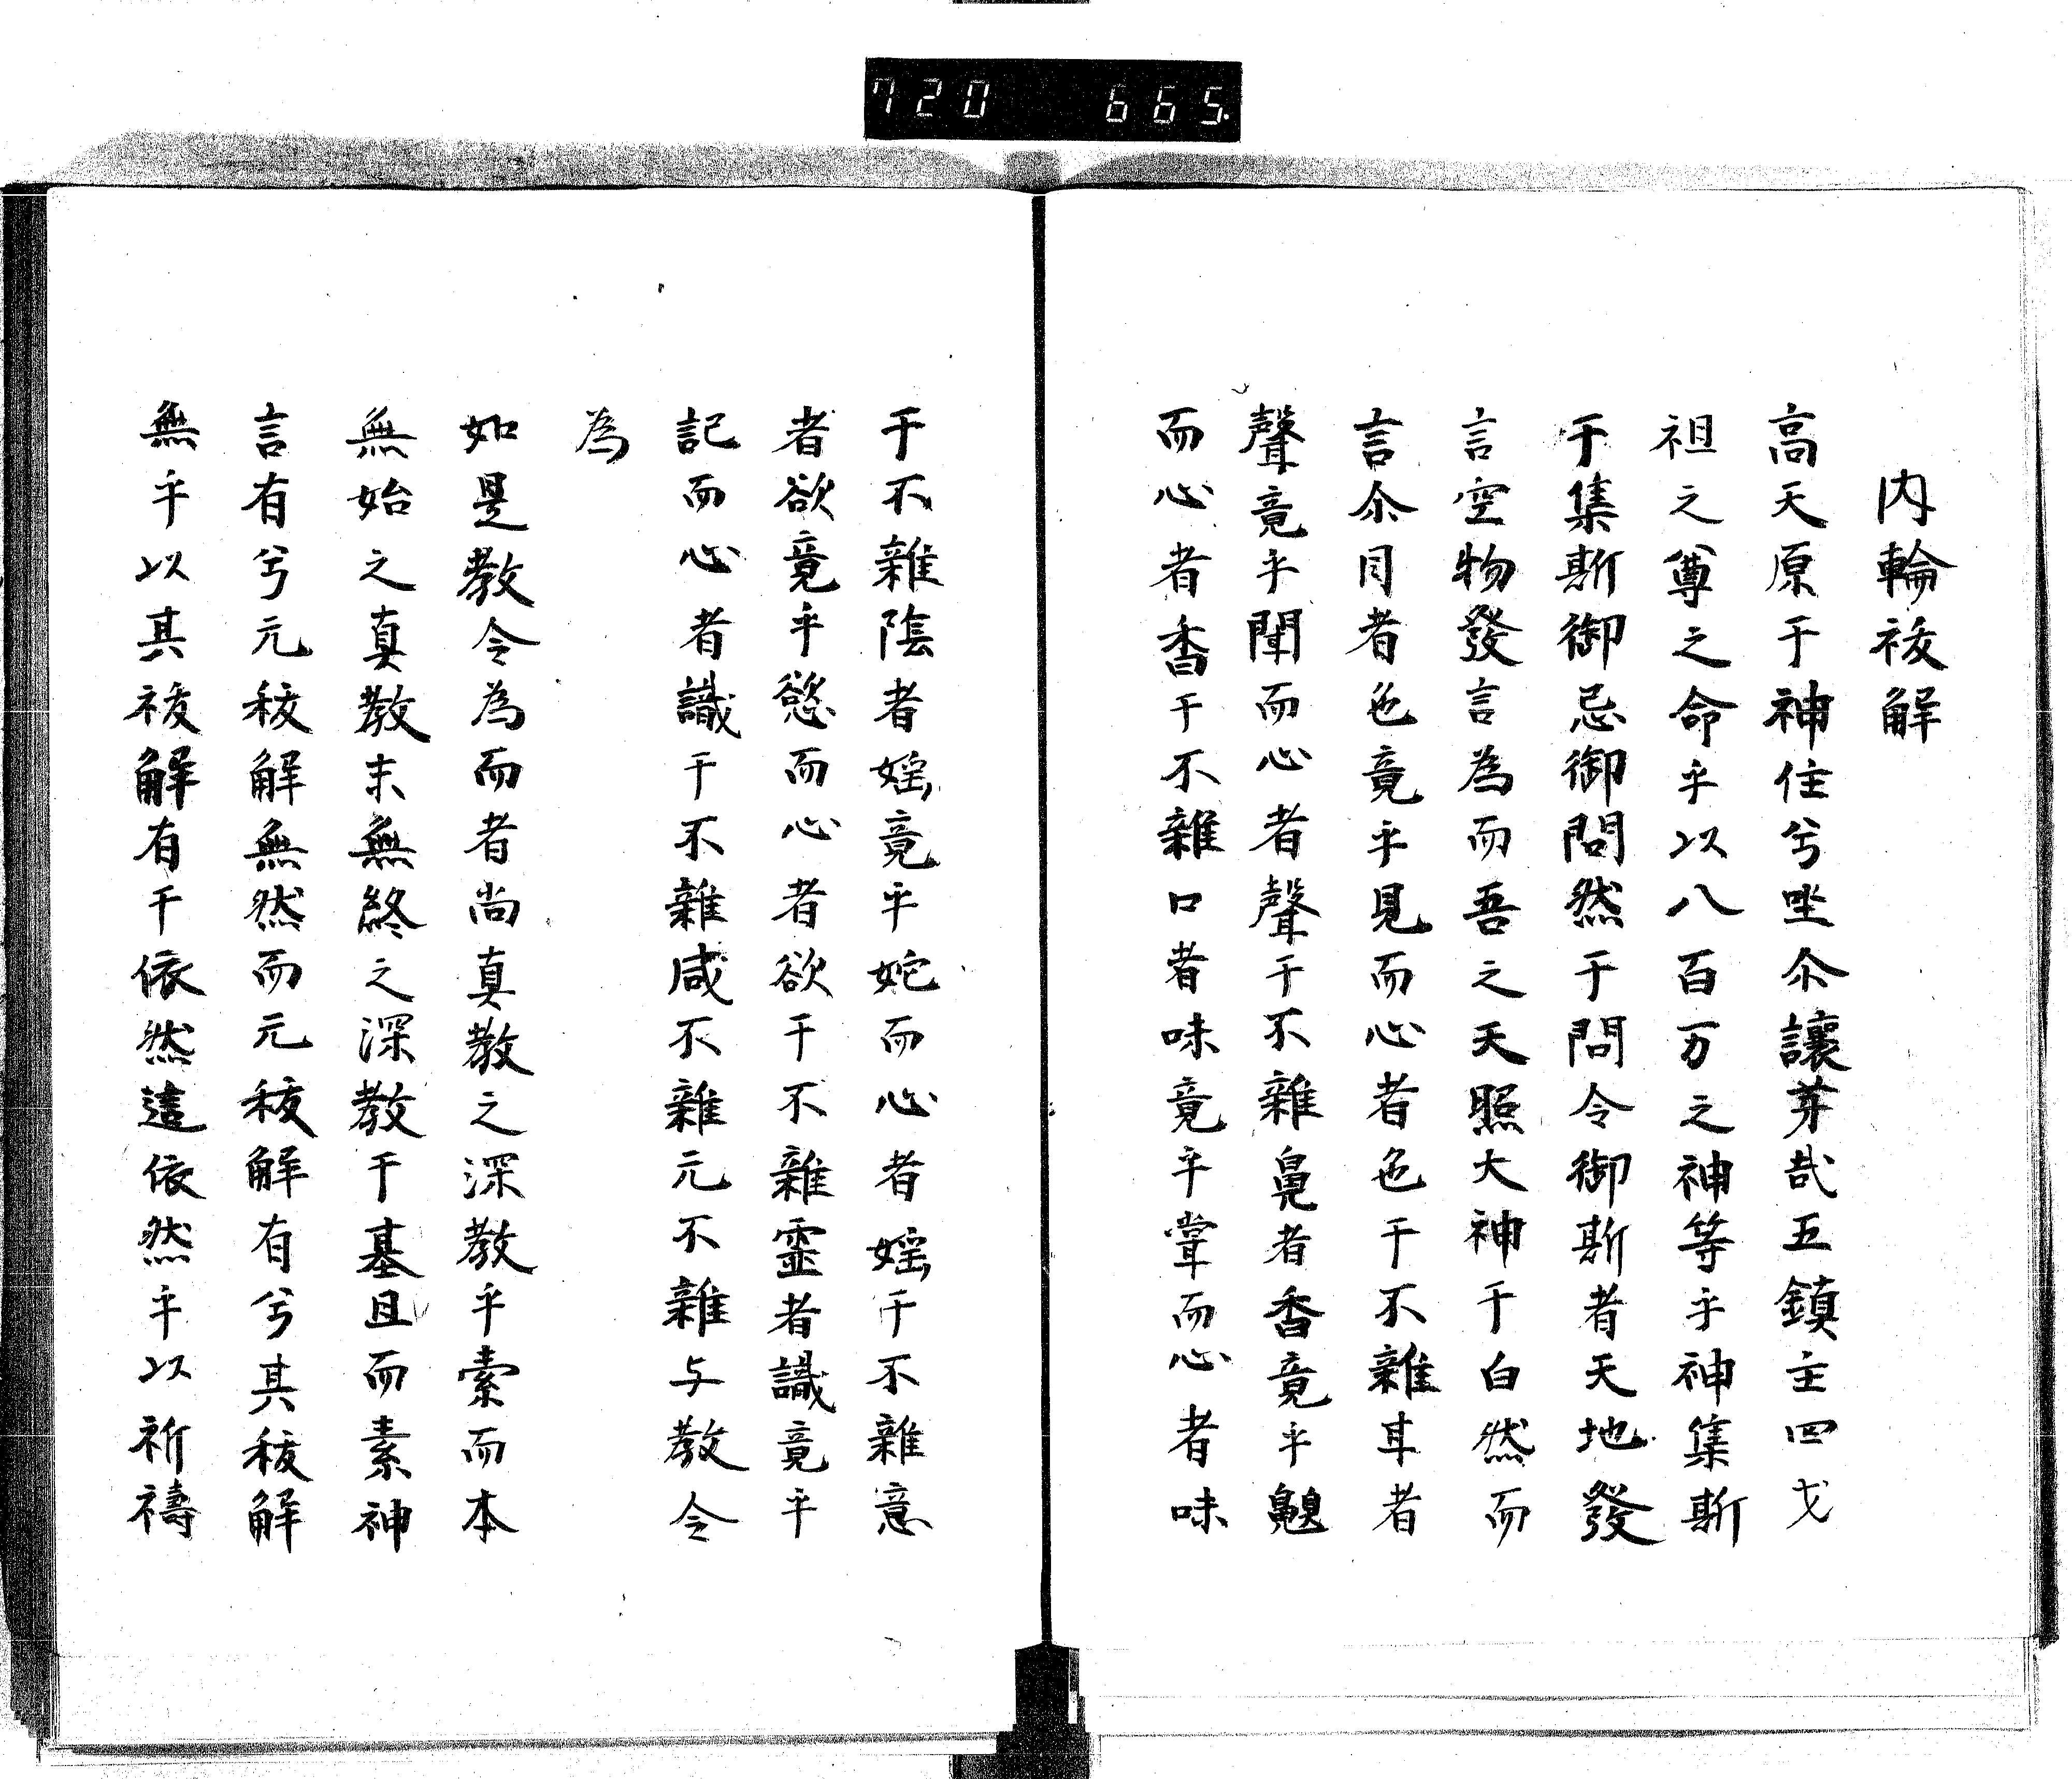 720 665.
内輪祓解
高天原于神住兮坐尒讓芽哉五鎮主四戈
祖之尊之命乎以八百万之神等乎神集斯
于集斯御忌御問然于問令御斯者天地發
言空物發言為而吾之天照大神于白然而
言尒目者色竟乎見而心者色于不雜耳者
聲竟乎聞而心者聲于不雜鼻者香竟乎齅
而心者香于不雜口者味竟乎甞而心者味
于不雜陰者婬竟乎婉而心者婬于不雜意
者欲竟乎慾而心者欲于不雜霊者識竟乎
記而心者識于不雜咸不雜元不雜与教令
為
如是教令為而者尚真教之深教乎索而本
無始之真教末無終之深教于基且而素神
言有兮元秡解無然而元秡解有兮其秡解
無乎以其祓解有于依然這依然乎以祈禱